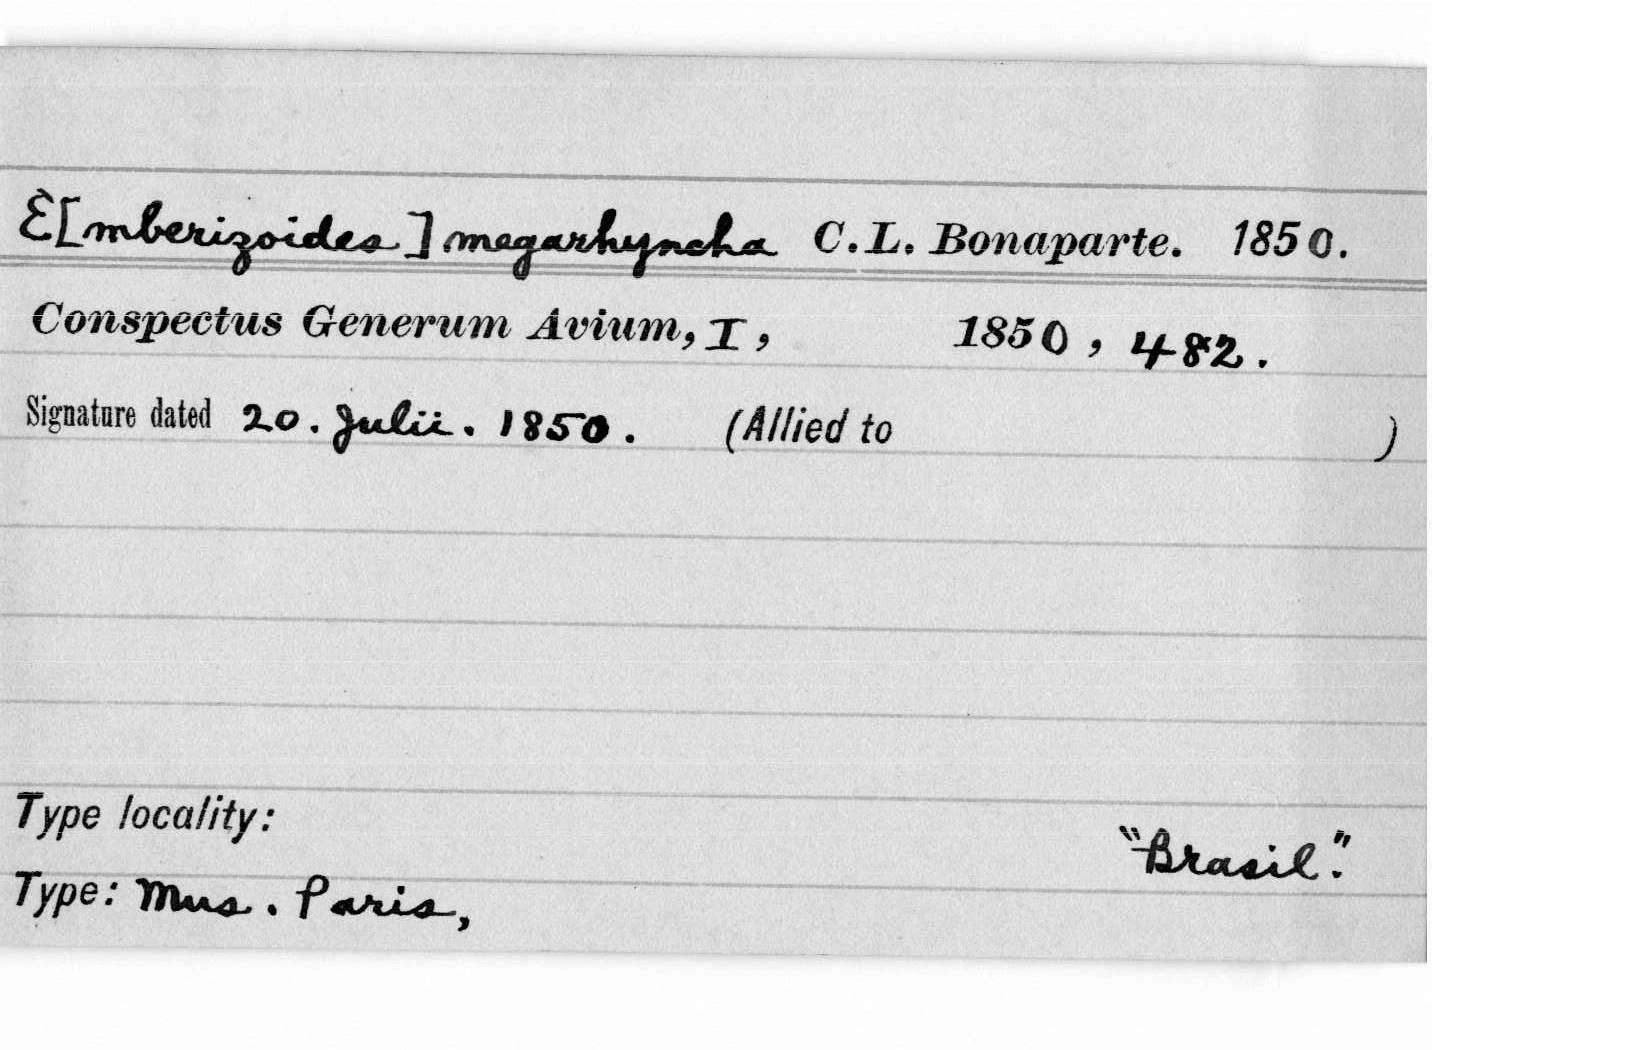 E[mberizoides] megarhyncha C.L. Bonaparte. 1850.
Conspectus Generum Avium, I, 1850, 482.
Signature dated 20. Julii. 1850. (Allied to )
Type locality:
"Brasil."
Type: Mus. Paris,